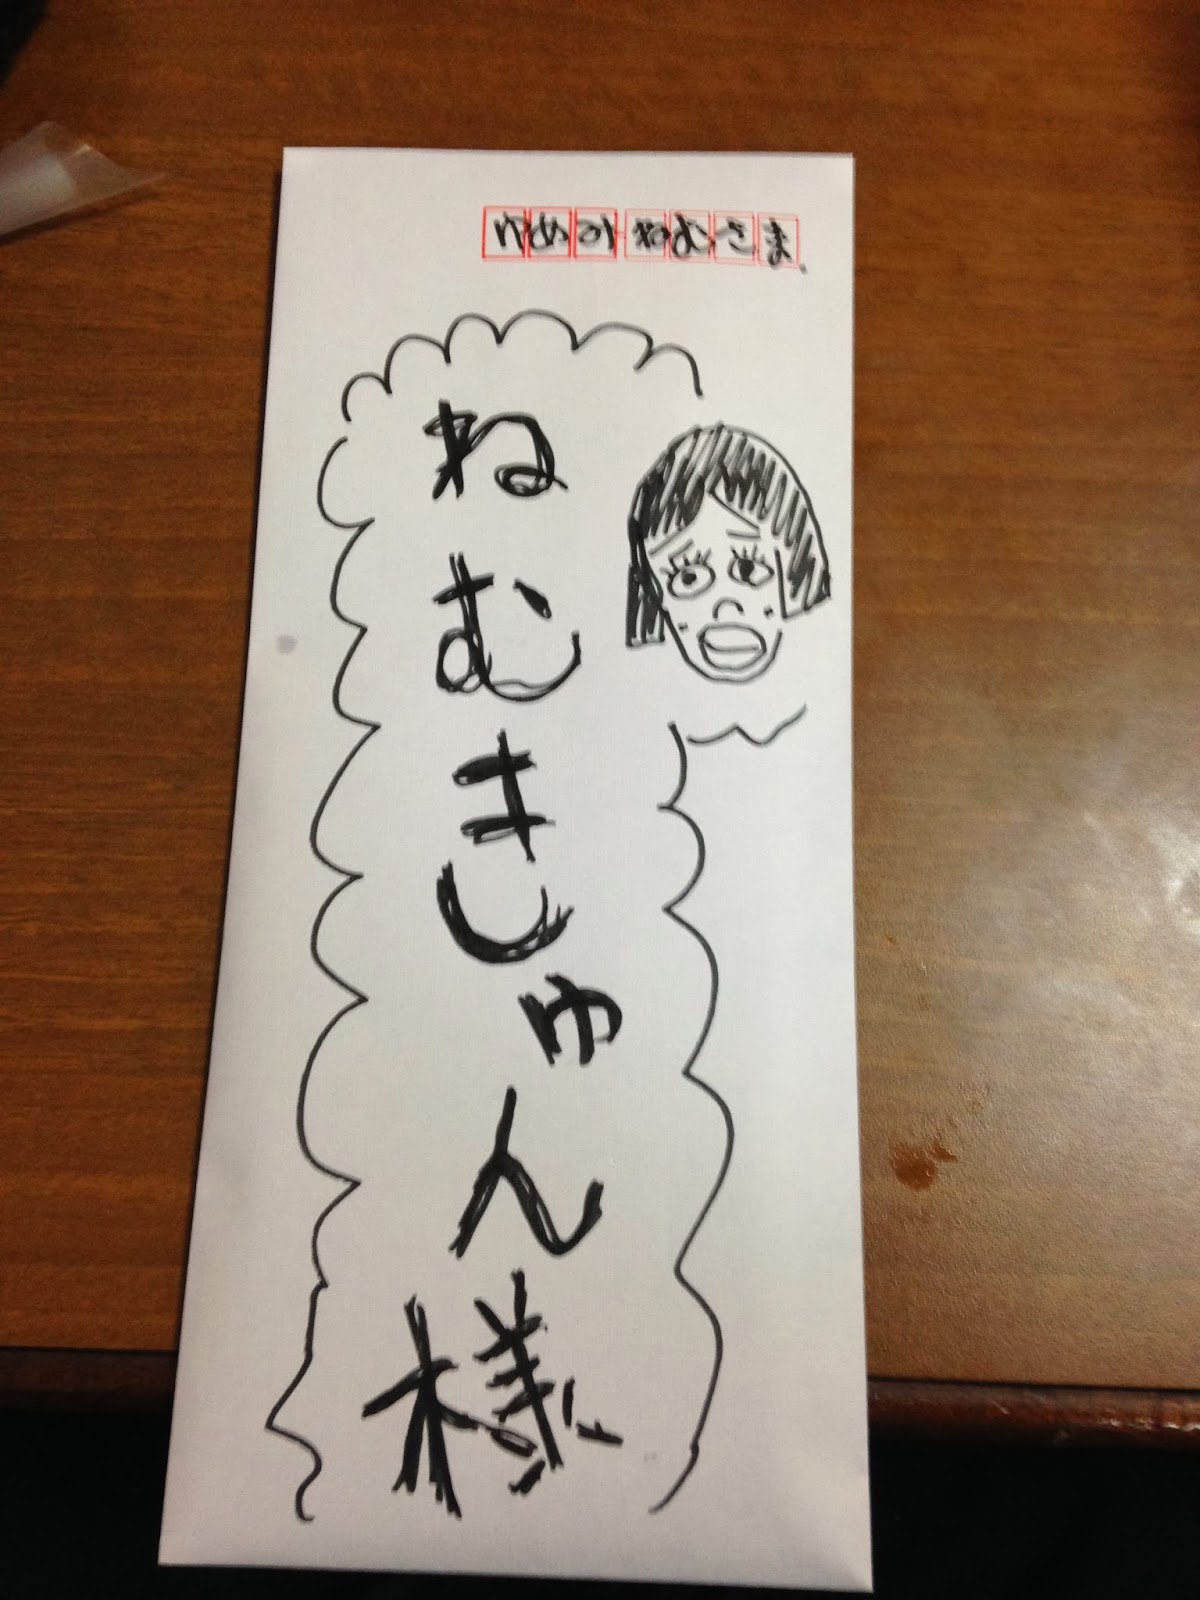 ゆめみねむさま
ねむきゅん様